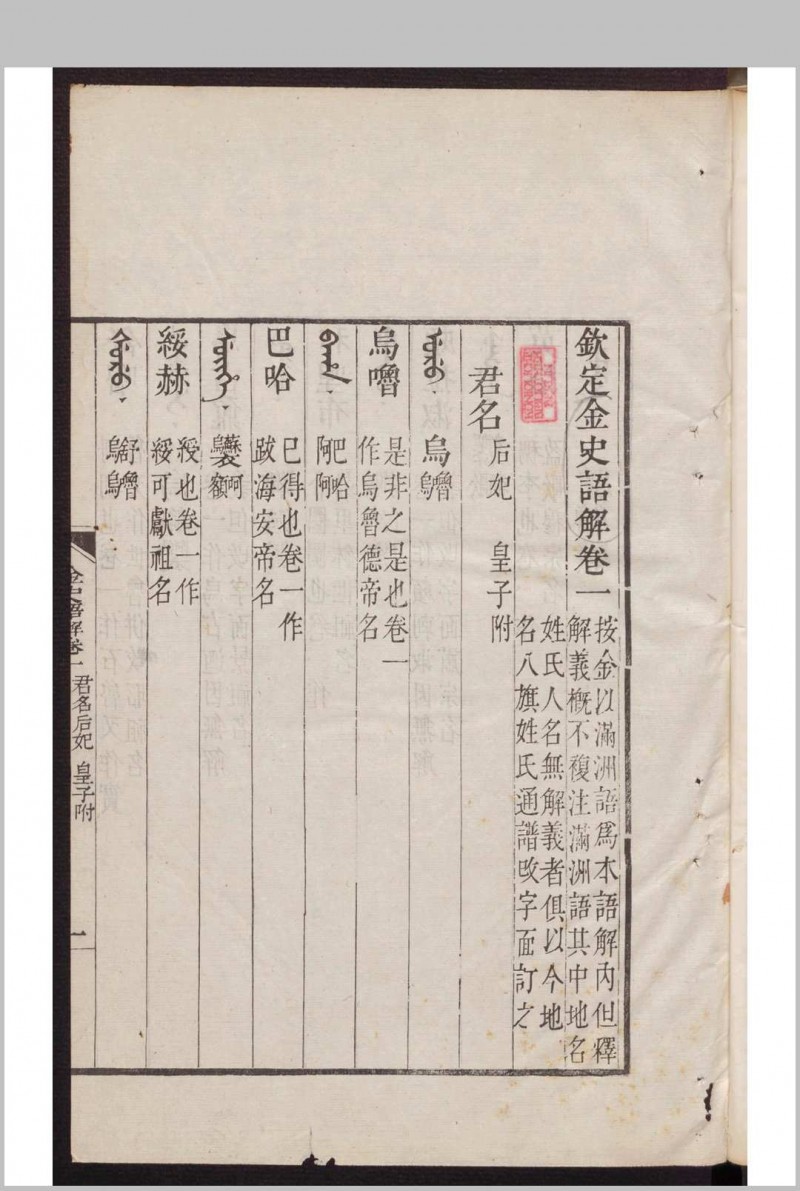 欽定金史語解卷一
按金以滿洲語爲本語解內但釋
解義概不複注滿洲語其中地名
姓氏人名無解義者俱以今地
名八旗姓氏通譜改字面訂之
君名 后妃 皇子附
ᡠᡵᡠ 烏
烏嚕
烏嚕 是非之是也卷一
作烏魯德帝名
ᠪᠠᡥᠠ 巴哈
阿阿
巴哈 已得也卷一作
跋海安帝名
綏赫 綬也卷一作
綏可獻祖名
ᡧᡠᡵᡠ 舒嚕
烏烏
金史語解卷一 君名后妃 皇子附 一